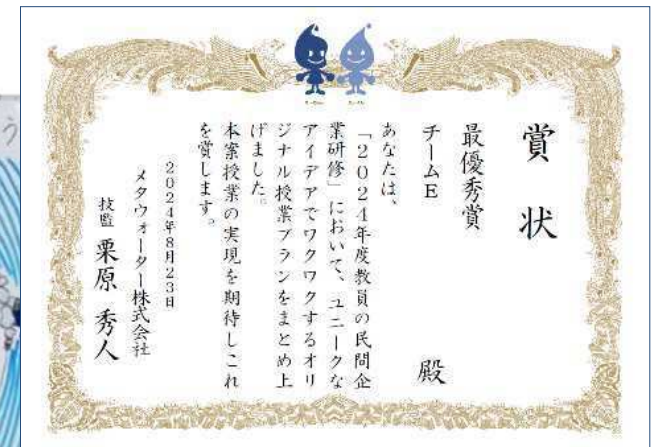 賞状
最優秀賞
チームE 殿
あなたは、
「2024年度教員の民間企
業研修」において、ユニークな
アイデアでワクワクするオリ
ジナル授業プランをまとめ上
げました。
本案授業の実現を期待しこれ
を賞します。
2024年8月23日
メタウォーター株式会社
技監 栗原 秀人
う